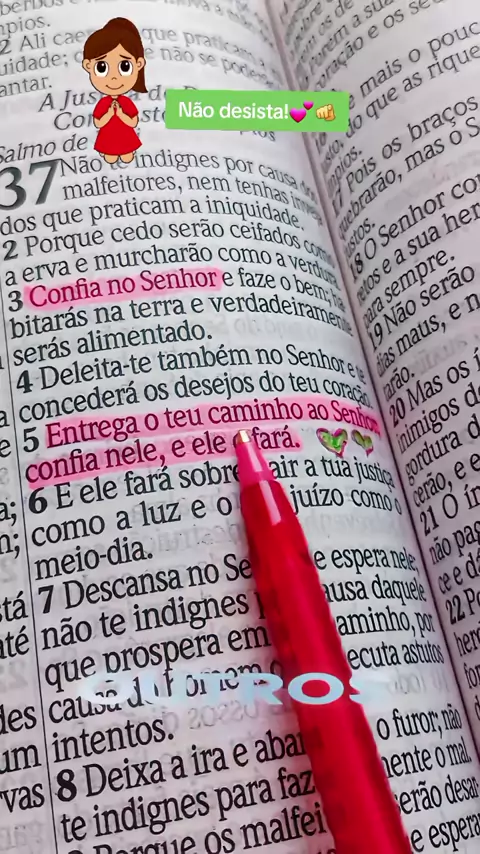 Não desista!💕🫵
2 Ali cae que praticam a
uidade; e não se pode
antar.
A Jus
Salmo de
37 Não te indignes por causa dos
malfeitores, nem tenhas
dos que praticam a iniquidade.
2 Porque cedo serão ceifados como
a erva e murcharão como a verdura
3 Confia no Senhor e faze o bem; ha
bitarás na terra e verdadeiramente
serás alimentado.
4 Deleita-te também no Senhor e te
concederá os desejos do teu coração.
5 Entrega o teu caminho ao Senhor
confia nele, e ele o fará.
6 E ele fará sobre air a tua justiça
como a luz e o juízo como o
meio-dia.
7 Descansa no Se e espera nele;
não te indignes ausa daquele
que prospera em aminho, por
causa do homem ecuta astutos
intentos.
OUTROS
8 Deixa a ira e aban o furor; não
te indignes para faz mente o mal.
Porque os malfei erão desar
e espera
a;
n;
stá
até
des
um
vas
e mais o pouc
do que as rique
ímpios.
17 Pois os braços
quebrarão, mas o S
justos.
18 O Senhor co
retos e a sua her
para sempre.
19 Não serão
dias maus, e n
tarão.
20 Mas os í
inimigos d
gordura d
cerão, e e
21 O ím
não pag
ce e dá
22 Po